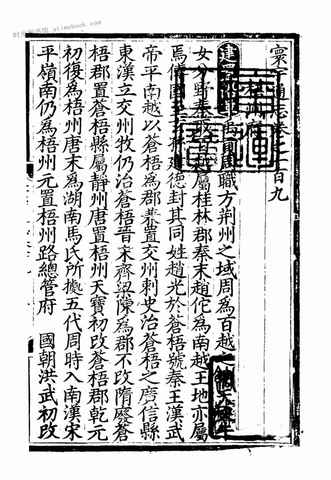 寰宇通志卷之一百九
梧州府
建置沿革 禹貢職方荆州之域周為百越之
女分野秦取百越屬桂林郡秦末趙佗為南越王地亦屬
焉傳國至建德封其同姓趙光於蒼梧號秦王漢武
帝平南越以蒼梧為郡兼置交州刺史治蒼梧之廣信縣
東漢立交州牧仍治蒼梧晋宋齊梁陳為郡不改隋廢蒼
梧郡置蒼梧縣屬靜州唐置梧州天寶初改蒼梧郡乾元
初復為梧州唐末為湖南馬氏所據五代周時入南漢宋
平嶺南仍為梧州元置梧州路總管府 國朝洪武初改